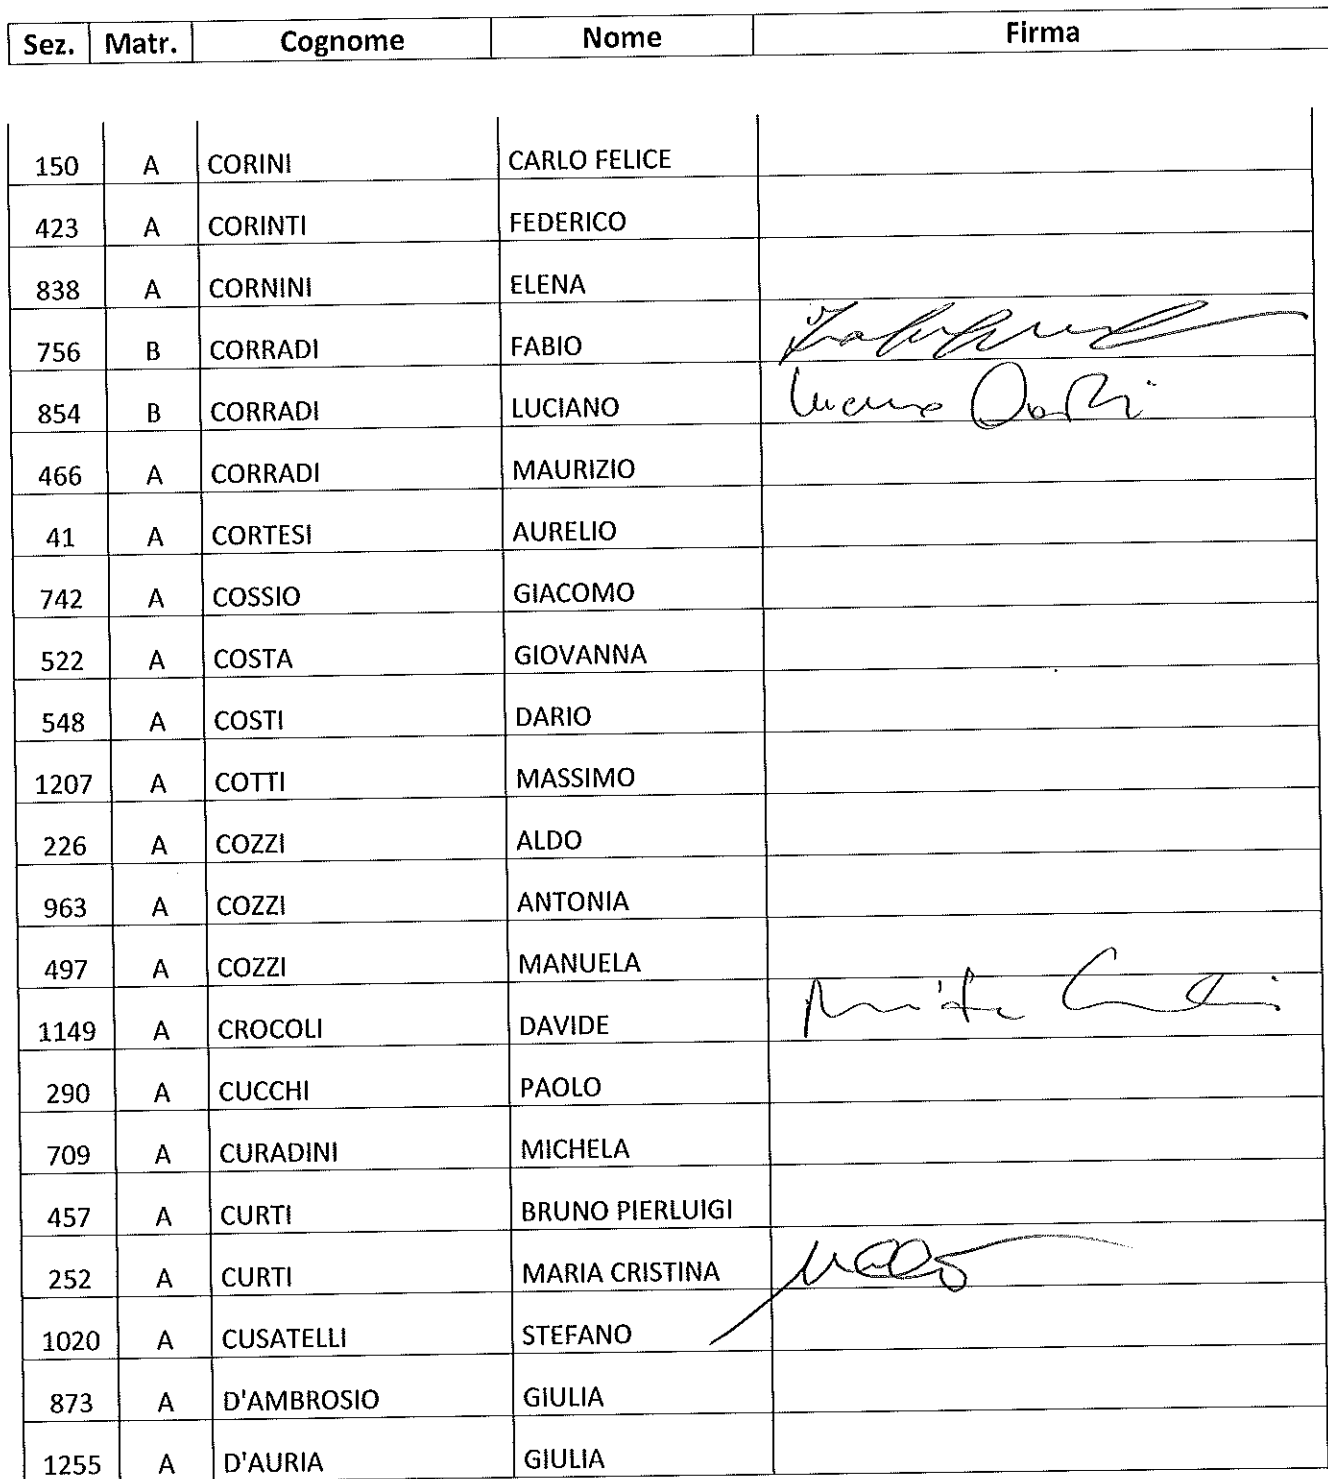 Sez. Matr. Cognome Nome Firma
150 A CORINI CARLO FELICE
423 A CORINTI FEDERICO
838 A CORNINI ELENA
756 B CORRADI FABIO
854 B CORRADI LUCIANO
466 A CORRADI MAURIZIO
41 A CORTESI AURELIO
742 A COSSIO GIACOMO
522 A COSTA GIOVANNA
548 A COSTI DARIO
1207 A COTTI MASSIMO
226 A COZZI ALDO
963 A COZZI ANTONIA
497 A COZZI MANUELA
1149 A CROCOLI DAVIDE
290 A CUCCHI PAOLO
709 A CURADINI MICHELA
457 A CURTI BRUNO PIERLUIGI
252 A CURTI MARIA CRISTINA
1020 A CUSATELLI STEFANO
873 A D'AMBROSIO GIULIA
1255 A D'AURIA GIULIA